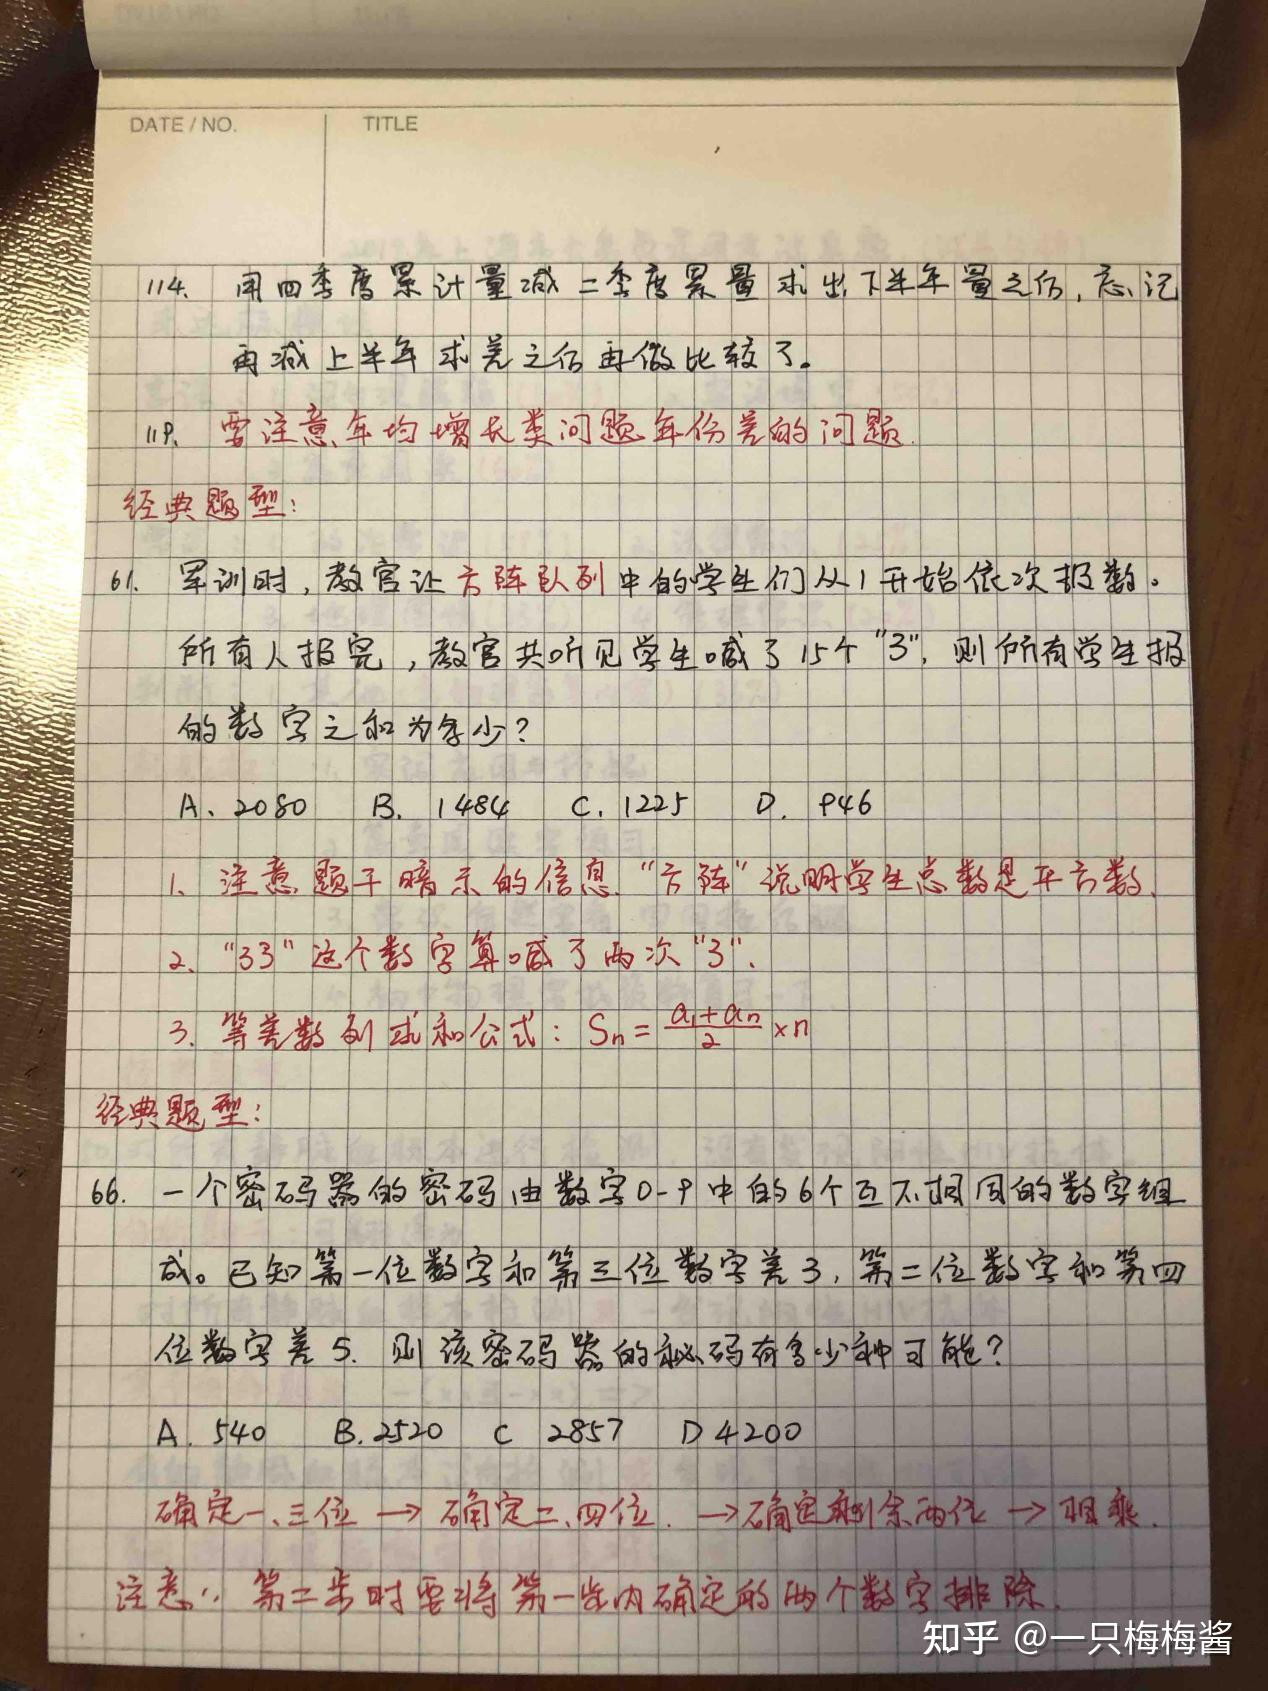 DATE / NO.
TITLE
114. 用四季度累计量减二季度累量求出下半年量之后，忘记
再减上半年求差之后再做比较了。
119. 要注意年均增长类问题年份差的问题.
经典题型:
61. 军训时，教官让方阵队列中的学生们从1开始依次报数。
所有人报完，教官共听见学生喊了15个"3"，则所有学生报
的数字之和为多少?
A. 2080 B. 1484 C. 1225 D. 946
1. 注意题干暗示的信息."方阵"说明学生总数是平方数.
2. "33"这个数字算喊了两次"3".
3. 等差数列求和公式: Sn = (a₁+an)/2 ×n
经典题型:
66. 一个密码器的密码由数字0-9中的6个互不相同的数字组
成。已知第一位数字和第三位数字差3，第二位数字和第四
位数字差5. 则该密码器的秘码有多少种可能?
A. 540 B. 2520 C 2857 D 4200
确定一、三位 → 确定二、四位. → 确定剩余两位 → 相乘.
注意: 第二步时要将第一步内确定的两个数字排除.
知乎 @一只梅梅酱